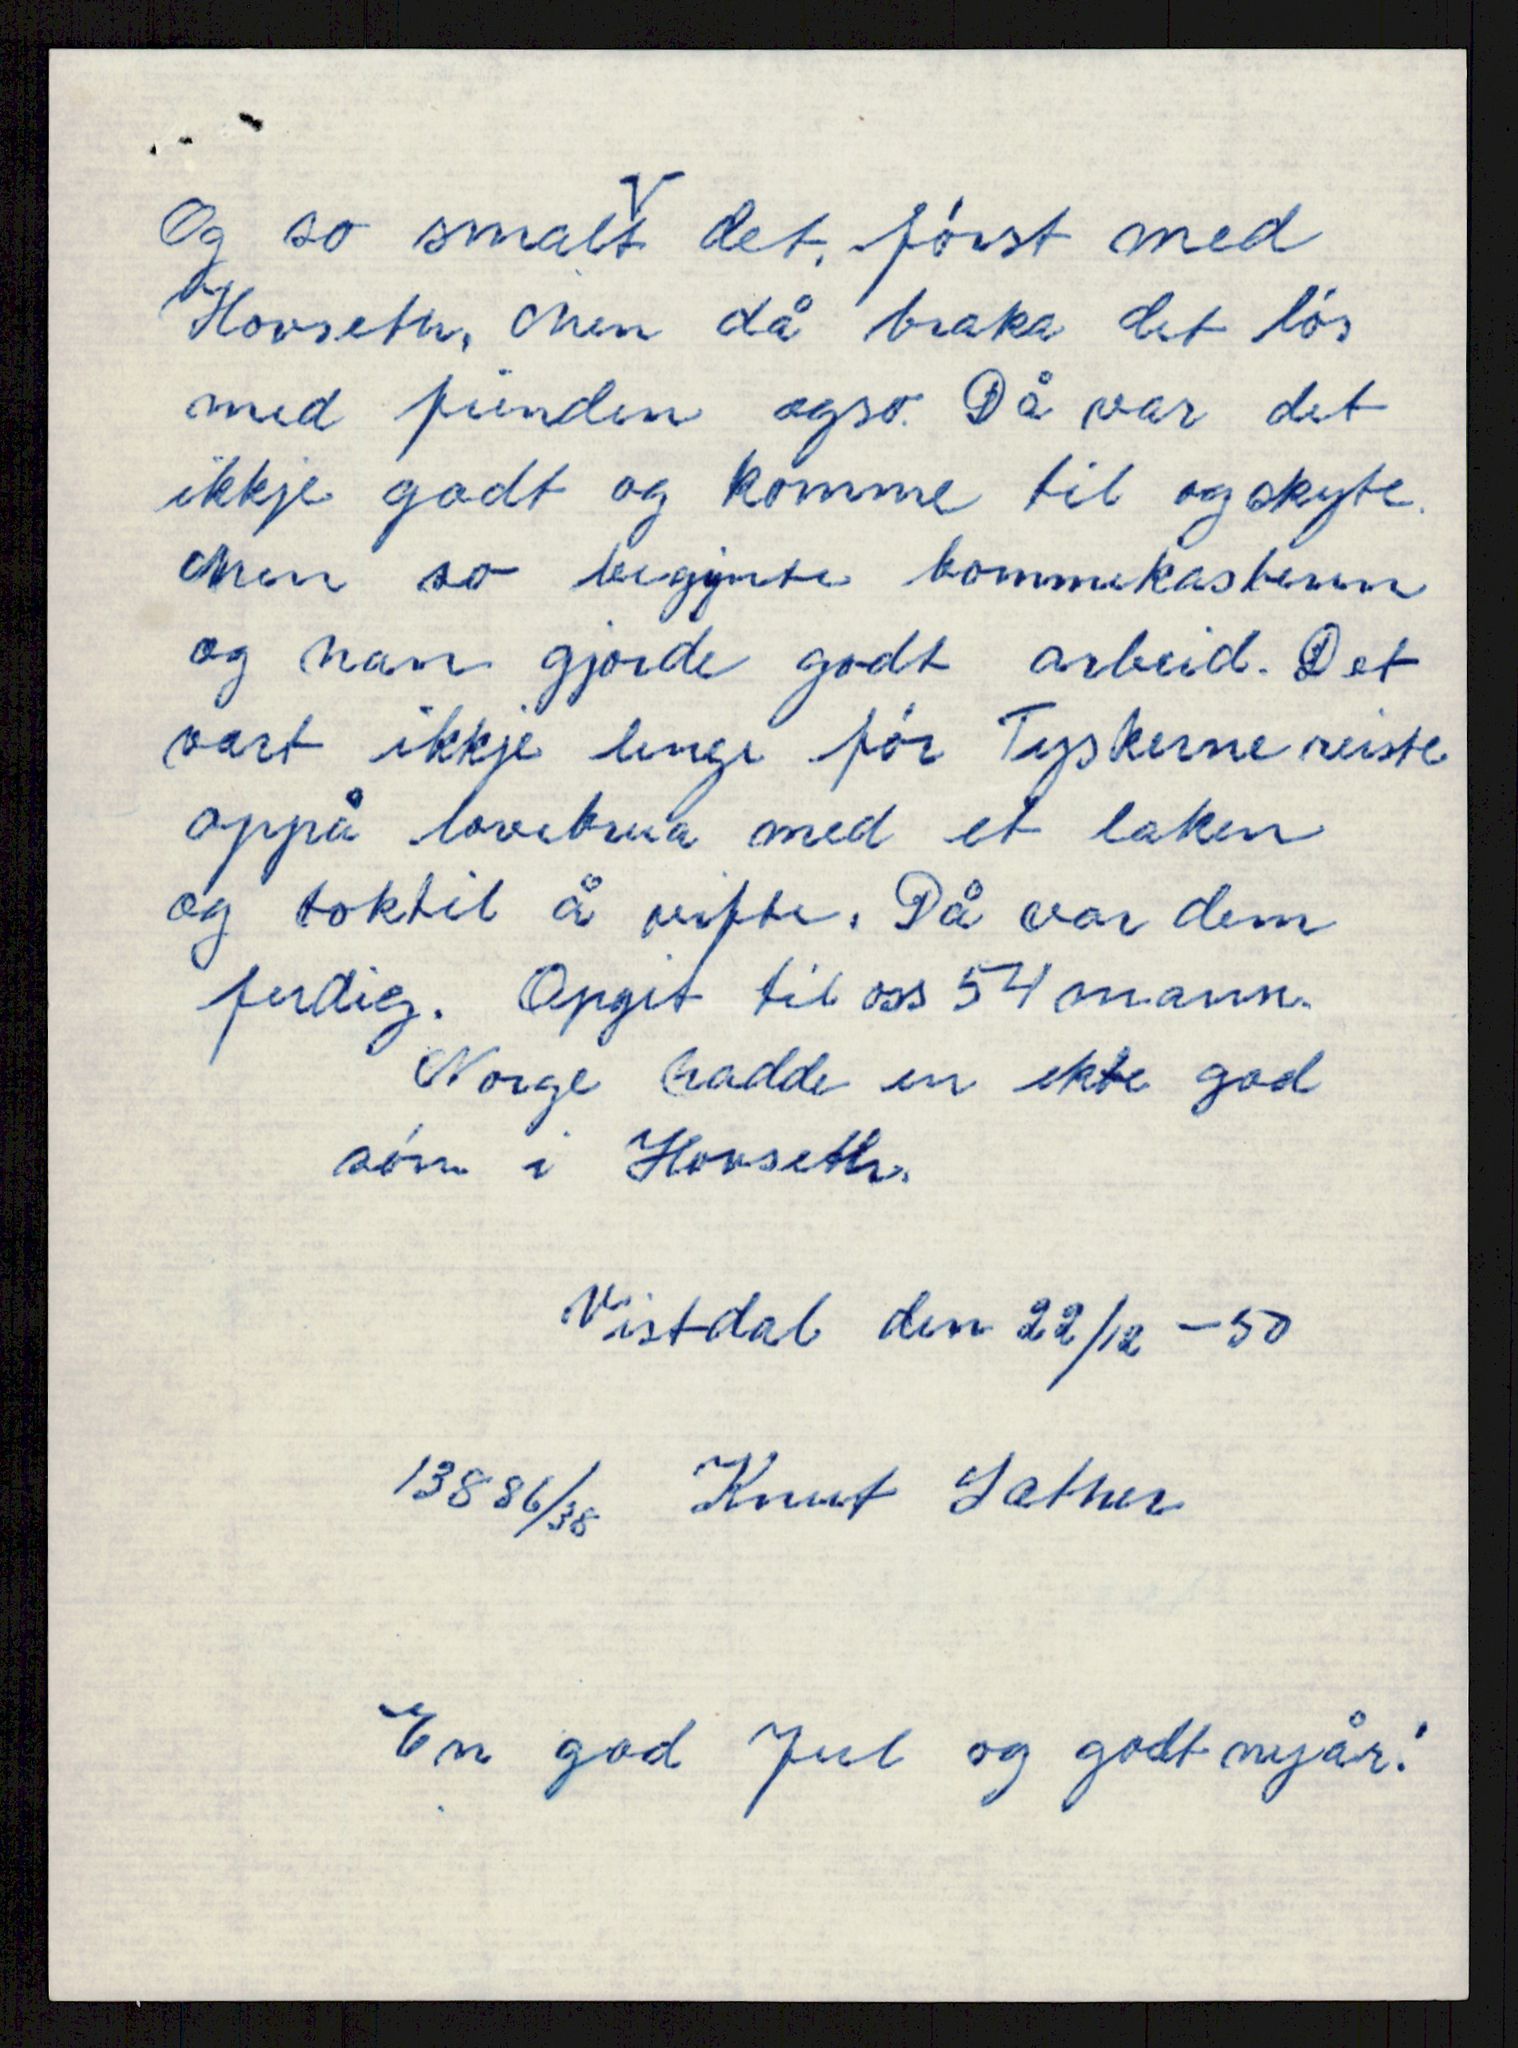 Og so smalt det, först med
Hovseth, Men då braka det lös
med fienden ogso. Då var det
ikkje godt og komme til og skyte.
Men so begynte bommekasteren
og han gjorde godt arbeid. Det
vart ikkje lengeför Tyskerne reiste
oppå lovebrua med et laken
og tok til å vifte. Då var dem
ferdig. Opgit til oss 54 mann.
Norge hadde en ekte god
sön i Hovseth.
Vistdal den 22/12 – 50
13886/38 Knut Sæther
En god Jul og godt nyår!